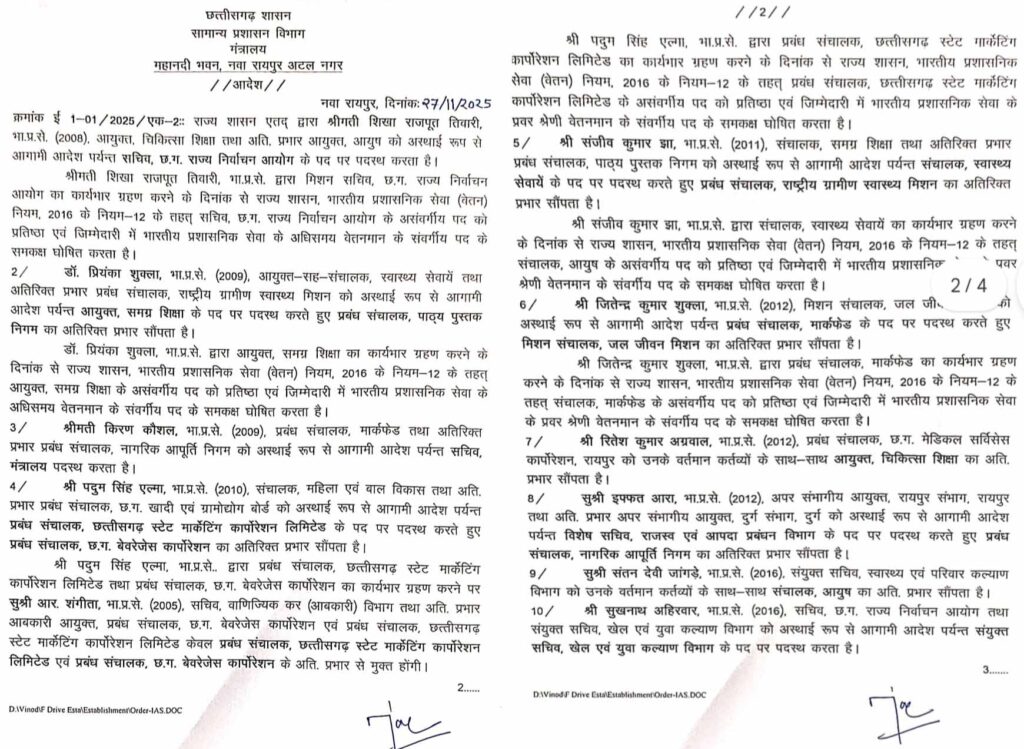 छत्तीसगढ़ शासन
सामान्य प्रशासन विभाग
मंत्रालय
महानदी भवन, नवा रायपुर अटल नगर
//आदेश//
नवा रायपुर, दिनांकः 27/11/2025
क्रमांक ई 1-01/2025/एक-2:: राज्य शासन एतद् द्वारा श्रीमती शिखा राजपूत तिवारी,
भा.प्र.से. (2008), आयुक्त, चिकित्सा शिक्षा तथा अति. प्रभार आयुक्त, आयुष को अस्थाई रूप से
आगामी आदेश पर्यन्त सचिव, छ.ग. राज्य निर्वाचन आयोग के पद पर पदस्थ करता है।
श्रीमती शिखा राजपूत तिवारी, भा.प्र.से. द्वारा मिशन सचिव, छ.ग. राज्य निर्वाचन
आयोग का कार्यभार ग्रहण करने के दिनांक से राज्य शासन, भारतीय प्रशासनिक सेवा (वेतन)
नियम, 2016 के नियम-12 के तहत् सचिव, छ.ग. राज्य निर्वाचन आयोग के असंवर्गीय पद को
प्रतिष्ठा एवं जिम्मेदारी में भारतीय प्रशासनिक सेवा के अधिसमय वेतनमान के संवर्गीय पद के
समकक्ष घोषित करता है।
2/ डॉ. प्रियंका शुक्ला, भा.प्र.से. (2009), आयुक्त-सह-संचालक, स्वास्थ्य सेवायें तथा
अतिरिक्त प्रभार प्रबंध संचालक, राष्ट्रीय ग्रामीण स्वास्थ्य मिशन को अस्थाई रूप से आगामी
आदेश पर्यन्त आयुक्त, समग्र शिक्षा के पद पर पदस्थ करते हुए प्रबंध संचालक, पाठ्य पुस्तक
निगम का अतिरिक्त प्रभार सौंपता है।
डॉ. प्रियंका शुक्ला, भा.प्र.से. द्वारा आयुक्त, समग्र शिक्षा का कार्यभार ग्रहण करने के
दिनांक से राज्य शासन, भारतीय प्रशासनिक सेवा (वेतन) नियम, 2016 के नियम-12 के तहत्
आयुक्त, समग्र शिक्षा के असंवर्गीय पद को प्रतिष्ठा एवं जिम्मेदारी में भारतीय प्रशासनिक सेवा के
अधिसमय वेतनमान के संवर्गीय पद के समकक्ष घोषित करता है।
3/ श्रीमती किरण कौशल, भा.प्र.से. (2009), प्रबंध संचालक, मार्कफेड तथा अतिरिक्त
प्रभार प्रबंध संचालक, नागरिक आपूर्ति निगम को अस्थाई रूप से आगामी आदेश पर्यन्त सचिव,
मंत्रालय पदस्थ करता है।
4/ श्री पदुम सिंह एल्मा, भा.प्र.से. (2010), संचालक, महिला एवं बाल विकास तथा अति.
प्रभार प्रबंध संचालक, छ.ग. खादी एवं ग्रामोद्योग बोर्ड को अस्थाई रूप से आगामी आदेश पर्यन्त
प्रबंध संचालक, छत्तीसगढ़ स्टेट मार्केटिंग कार्पोरेशन लिमिटेड के पद पर पदस्थ करते हुए
प्रबंध संचालक, छ.ग. बेवरेजेस कार्पोरेशन का अतिरिक्त प्रभार सौंपता है।
श्री पदुम सिंह एल्मा, भा.प्र.से.. द्वारा प्रबंध संचालक, छत्तीसगढ़ स्टेट मार्केटिंग
कार्पोरेशन लिमिटेड तथा प्रबंध संचालक, छ.ग. बेवरेजेस कार्पोरेशन का कार्यभार ग्रहण करने पर
सुश्री आर. शंगीता, भा.प्र.से. (2005), सचिव, वाणिज्यिक कर (आबकारी) विभाग तथा अति. प्रभार
आबकारी आयुक्त, प्रबंध संचालक, छ.ग. बेवरेजेस कार्पोरेशन एवं प्रबंध संचालक, छत्तीसगढ़
स्टेट मार्केटिंग कार्पोरेशन लिमिटेड केवल प्रबंध संचालक, छत्तीसगढ़ स्टेट मार्केटिंग कार्पोरेशन
लिमिटेड एवं प्रबंध संचालक, छ.ग. बेवरेजेस कार्पोरेशन के अति. प्रभार से मुक्त होंगी।
2......
D:\Vinod\F Drive Esta\Establishment\Order-IAS.DOC
//2//
श्री पदुम सिंह एल्मा, भा.प्र.से. द्वारा प्रबंध संचालक, छत्तीसगढ़ स्टेट मार्केटिंग
कार्पोरेशन लिमिटेड का कार्यभार ग्रहण करने के दिनांक से राज्य शासन, भारतीय प्रशासनिक
सेवा (वेतन) नियम, 2016 के नियम-12 के तहत् प्रबंध संचालक, छत्तीसगढ़ स्टेट मार्केटिंग
कार्पोरेशन लिमिटेड के असंवर्गीय पद को प्रतिष्ठा एवं जिम्मेदारी में भारतीय प्रशासनिक सेवा के
प्रवर श्रेणी वेतनमान के संवर्गीय पद के समकक्ष घोषित करता है।
5/ श्री संजीव कुमार झा, भा.प्र.से. (2011), संचालक, समग्र शिक्षा तथा अतिरिक्त प्रभार
प्रबंध संचालक, पाठ्य पुस्तक निगम को अस्थाई रूप से आगामी आदेश पर्यन्त संचालक, स्वास्थ्य
सेवायें के पद पर पदस्थ करते हुए प्रबंध संचालक, राष्ट्रीय ग्रामीण स्वास्थ्य मिशन का अतिरिक्त
प्रभार सौंपता है।
श्री संजीव कुमार झा, भा.प्र.से. द्वारा संचालक, स्वास्थ्य सेवायें का कार्यभार ग्रहण करने
के दिनांक से राज्य शासन, भारतीय प्रशासनिक सेवा (वेतन) नियम, 2016 के नियम-12 के तहत्
संचालक, आयुष के असंवर्गीय पद को प्रतिष्ठा एवं जिम्मेदारी में भारतीय प्रशासनिक
श्रेणी वेतनमान के संवर्गीय पद के समकक्ष घोषित करता है।
2/4
6/ श्री जितेन्द्र कुमार शुक्ला, भा.प्र.से. (2012), मिशन संचालक, जल को
अस्थाई रूप से आगामी आदेश पर्यन्त प्रबंध संचालक, मार्कफेड के पद पर पदस्थ करते हुए
मिशन संचालक, जल जीवन मिशन का अतिरिक्त प्रभार सौंपता है।
श्री जितेन्द्र कुमार शुक्ला, भा.प्र.से. द्वारा प्रबंध संचालक, मार्कफेड का कार्यभार ग्रहण
करने के दिनांक से राज्य शासन, भारतीय प्रशासनिक सेवा (वेतन) नियम, 2016 के नियम-12 के
तहत् संचालक, मार्कफेड के असंवर्गीय पद को प्रतिष्ठा एवं जिम्मेदारी में भारतीय प्रशासनिक सेवा
के प्रवर श्रेणी वेतनमान के संवर्गीय पद के समकक्ष घोषित करता है।
7/ श्री रितेश कुमार अग्रवाल, भा.प्र.से. (2012), प्रबंध संचालक, छ.ग. मेडिकल सर्विसेस
कार्पोरेशन, रायपुर को उनके वर्तमान कर्तव्यों के साथ-साथ आयुक्त, चिकित्सा शिक्षा का अति.
प्रभार सौंपता है।
8/ सुश्री इफ्फत आरा, भा.प्र.से. (2012), अपर संभागीय आयुक्त, रायपुर संभाग, रायपुर
तथा अति. प्रभार अपर संभागीय आयुक्त, दुर्ग संभाग, दुर्ग को अस्थाई रूप से आगामी आदेश
पर्यन्त विशेष सचिव, राजस्व एवं आपदा प्रबंधन विभाग के पद पर पदस्थ करते हुए प्रबंध
संचालक, नागरिक आपूर्ति निगम का अतिरिक्त प्रभार सौंपता है।
9/ सुश्री संतन देवी जांगड़े, भा.प्र.से. (2016), संयुक्त सचिव, स्वास्थ्य एवं परिवार कल्याण
विभाग को उनके वर्तमान कर्तव्यों के साथ-साथ संचालक, आयुष का अति. प्रभार सौंपता है।
10/ श्री सुखनाथ अहिरवार, भा.प्र.से. (2016), सचिव, छ.ग. राज्य निर्वाचन आयोग तथा
संयुक्त सचिव, खेल एवं युवा कल्याण विभाग को अस्थाई रूप से आगामी आदेश पर्यन्त संयुक्त
सचिव, खेल एवं युवा कल्याण विभाग के पद पर पदस्थ करता है।
3......
D:\Vinod\F Drive Esta\Establishment\Order-IAS.DOC